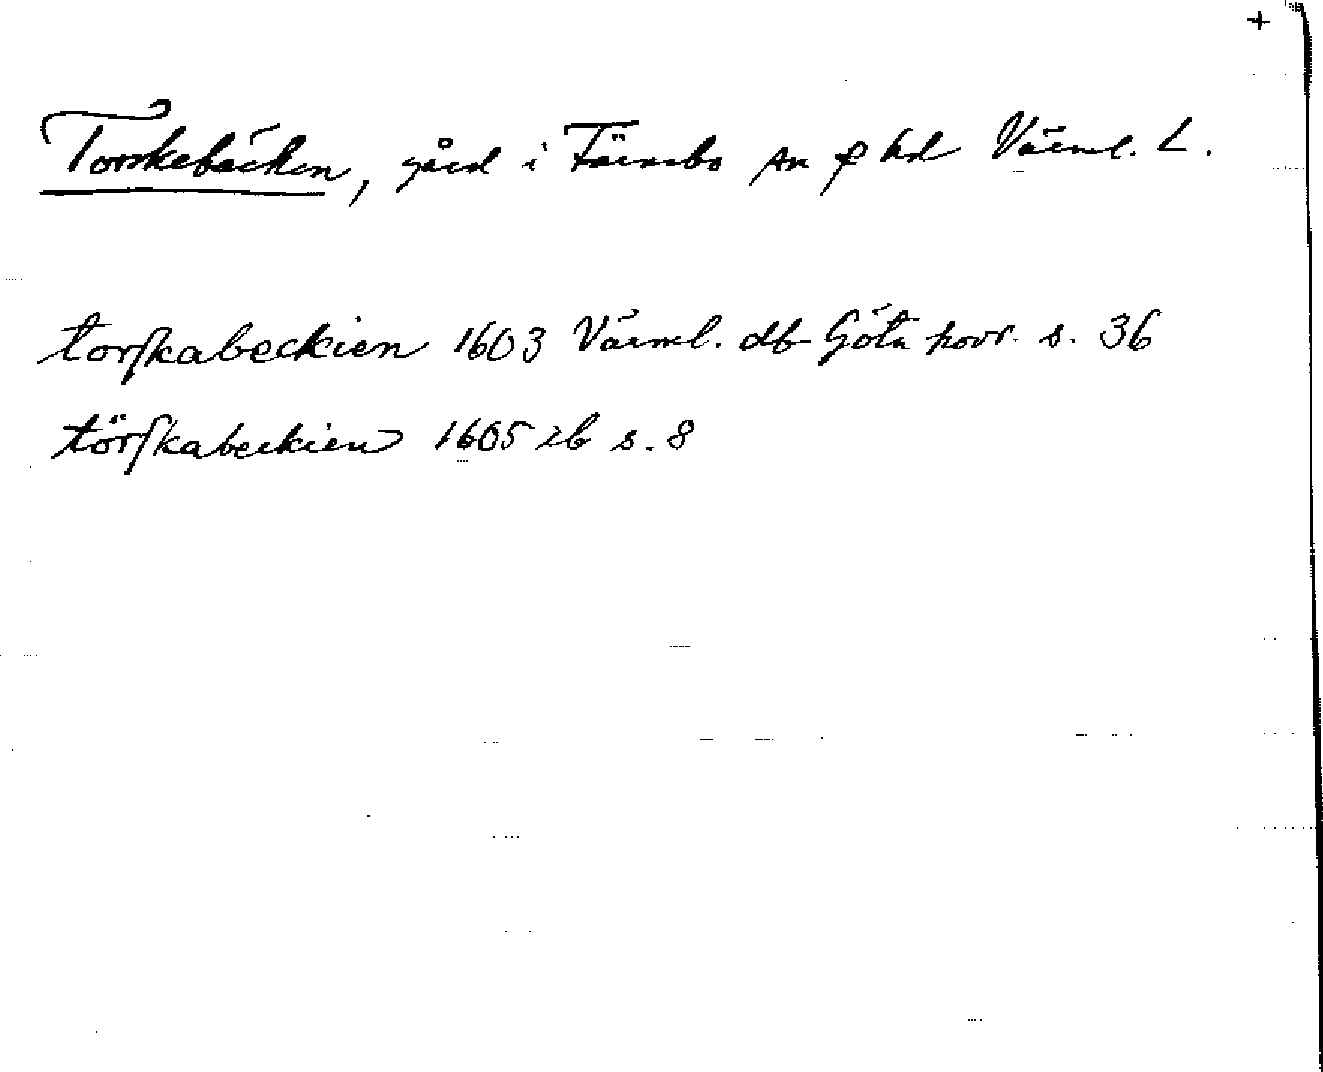 +
Torskebäcken, gård i Färnebo sn o hd Värml. L.
torſkabeckien 1603 Värml. db Göta hovr. s. 36
törſkabeckien 1605 ib s. 8